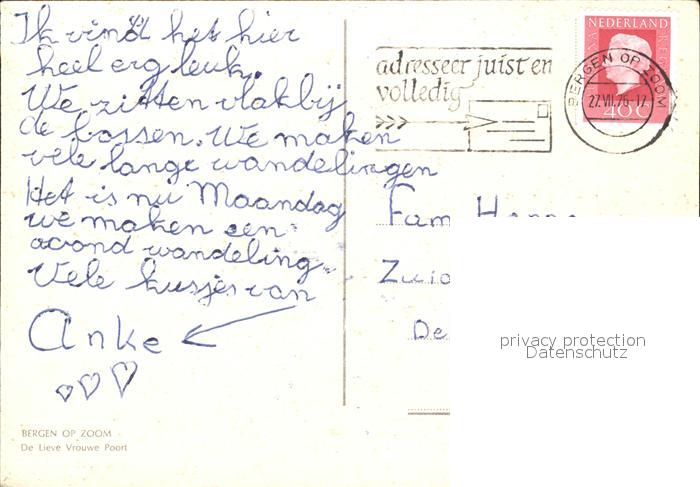 Ik vind het hier
heel erg leuk.
We zitten vlakbij
de bossen. We maken
vele lange wandelingen
Het is nu Maandag
we maken een
avond wandeling.
Vele kusjes van
Anke
BERGEN OP ZOOM
De Lieve Vrouwe Poort
adresseer juist en
volledig
NEDERLAND
BERGEN OP ZOOM
27.VII.76-17
40 c
Fam
De
privacy protection
Datenschutz